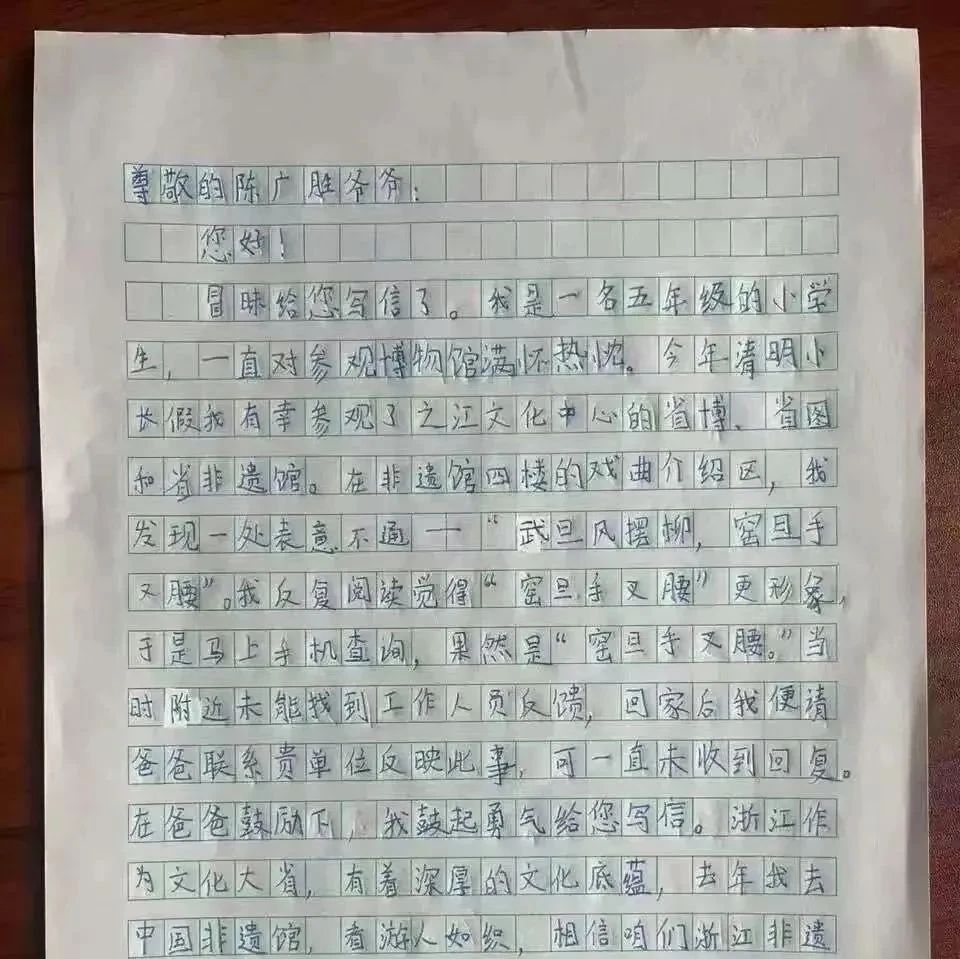 尊敬的陈广胜爷爷：
您好！
冒昧给您写信了。我是一名五年级的小学
生，一直对参观博物馆满怀热忱。今年清明小
长假我有幸参观了之江文化中心的省博、省图
和省非遗馆。在非遗馆四楼的戏曲介绍区，我
发现一处表意不通——“武旦风摆柳，窑旦手
又腰”。我反复阅读觉得“窑旦手叉腰”更形象，
于是马上手机查询，果然是“窑旦手叉腰。”当
时附近未能找到工作人员反馈，回家后我便请
爸爸联系贵单位反映此事，可一直未收到回复。
在爸爸鼓励下，我鼓起勇气给您写信。浙江作
为文化大省，有着深厚的文化底蕴，去年我去
中国非遗馆，看游人如织，相信咱们浙江非遗